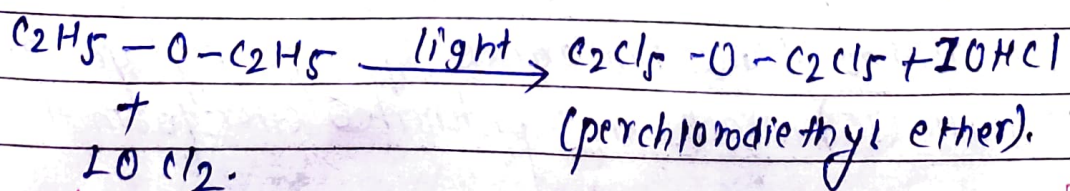 C2H5 - O - C2H5 light → C2Cl5 - O - C2Cl5 + 10HCl
+ (perchlorodiethyl ether).
10 Cl2.